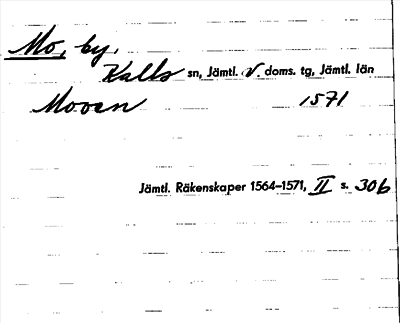 Mo, by.
Kalls sn, Jämtl. V. doms. tg, Jämtl. län
Mooen 1571
Jämtl. Räkenskaper 1564–1571, II s. 306